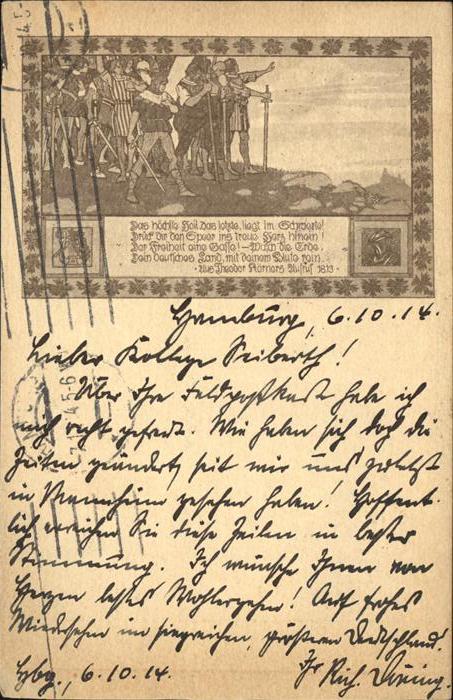 Das höchste Heil, das letzte, liegt im Schwerte!
Drück dir den Speer ins treue Herz hinein!
Der Freiheit eine Gasse! – Wasch die Erde
Dein deutsches Land, mit deinem Blute rein.
· Aus Theodor Körners Aufruf 1813 ·
Hamburg, 6.10.14.
Lieber Kollege Seiberth!
Über Ihre Feldpostkarte habe ich
mich recht gefreut. Wie haben sich doch die
Zeiten geändert, seit wir uns zuletzt
in Mannheim gesehen haben! Hoffent-
lich erreichen Sie diese Zeilen in bester
Stimmung. Ich wünsche Ihnen von
Herzen bestes Wohlergehen! Auf frohes
Wiedersehn im siegreichen, größeren Deutschland!
Hbg., 6.10.14. Ihr Rich.